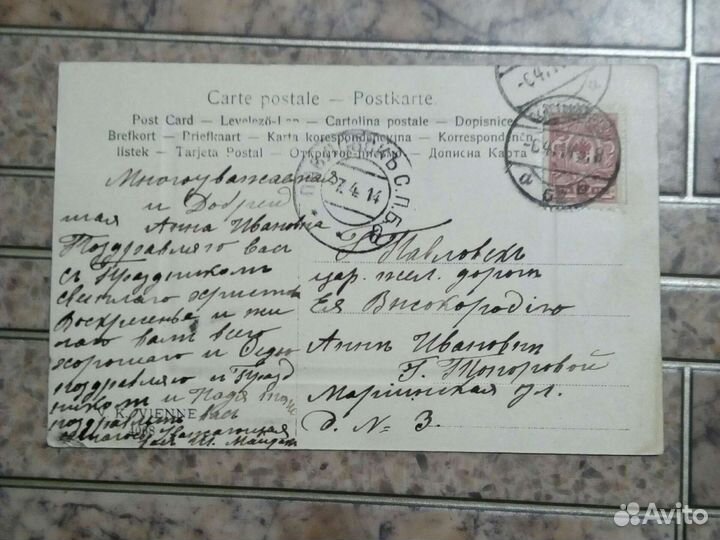 Carte postale — Postkarte.
Post Card — Levelező-Lap — Cartolina postale — Dopisnice
Brefkort — Priefkaart — Karta korespondencyjna — Korespondenčn
listek — Tarjeta Postal — Открытое письмо — Дописна Карта
-6.4.14
-6.4.14
7.4.14
С.П.Б.
Многоуважаемая
и Добрей
шая Анна Ивановна
Поздравляю Васъ
съ Праздникомъ
светлаго христо
Воскресенье и же
лаю вамъ всего
хорошаго и
поздравляю и
и Надя
поздравляетъ Васъ
Уважающая
Г Павловскъ
цар. жел. дороги
Ея Высокородію
Анне Ивановни
Г. Топоровой
Маріинская ул.
д. № 3.
K. VIENNE
Avito